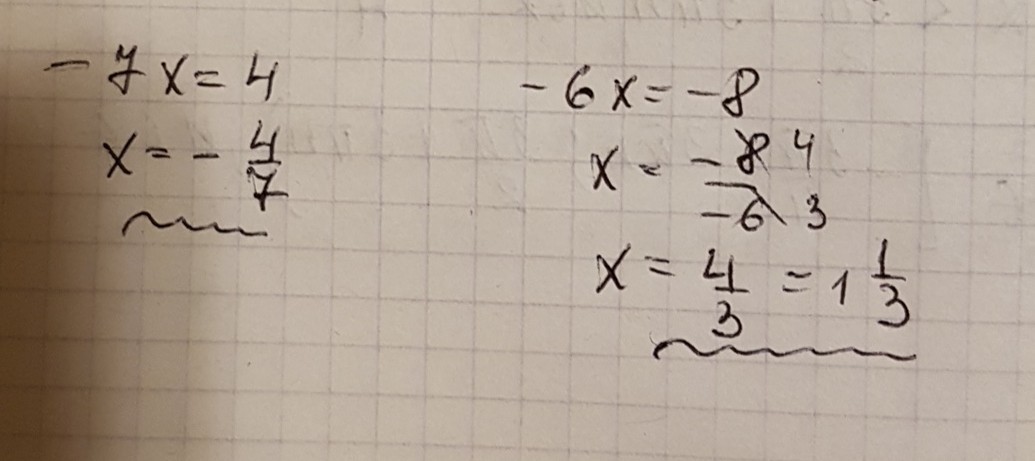 -7x=4
x=-4/7
-6x=-8
x=-8/-6 4/3
x=4/3=1 1/3